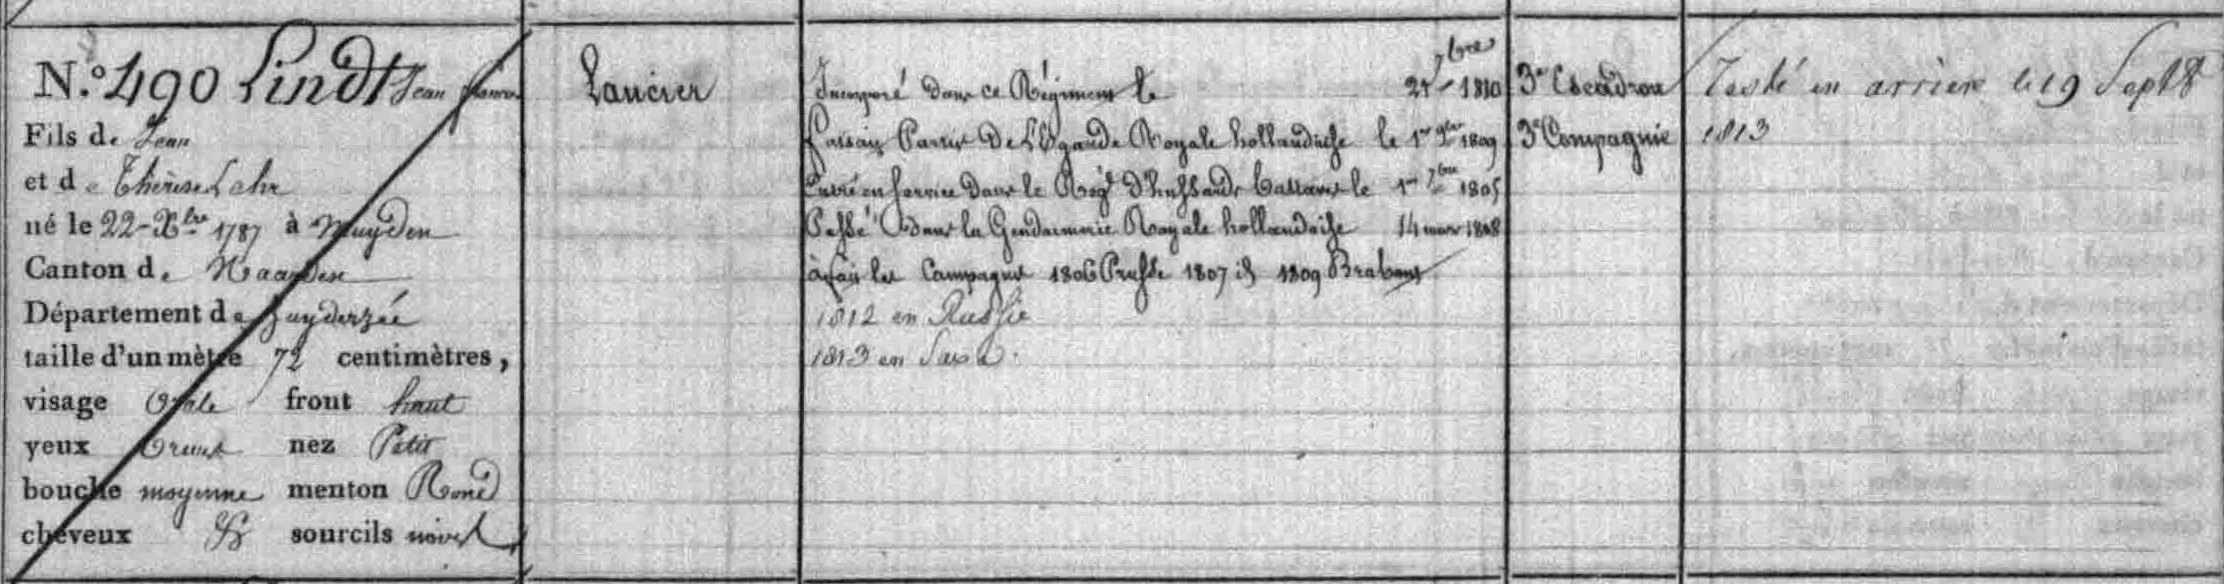 N.º 490 Lindt Jean
Fils de Jean
et de Thérèse Lehr
né le 22 Xbre 1787 à Muyden
Canton de Naarden
Département de Zuyderzée
taille d'un mètre 72 centimètres,
visage Ovale front haut
yeux bruns nez Petit
bouche moyenne menton Rond
cheveux sourcils noirs
Lancier
Incorporé dans ce Régiment le 21 7bre 1810
faisais Partie De La garde Royale hollandaise le 1er 9bre 1809
Entré en Service Dans le Régt d'hussards bataves le 1er 7bre 1805
Passé dans la Gendarmerie Royale hollandaise 14 mars 1808
à fait les Campagnes 1806 Prusse 1807 id 1809 Brabant
1812 en Russie
1813 en Saxe.
3e Escadron
3e Compagnie
Resté en arrière le 19 Sept
1813